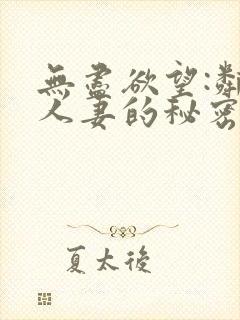 無盡欲望:鄰
人妻的秘密
夏太後